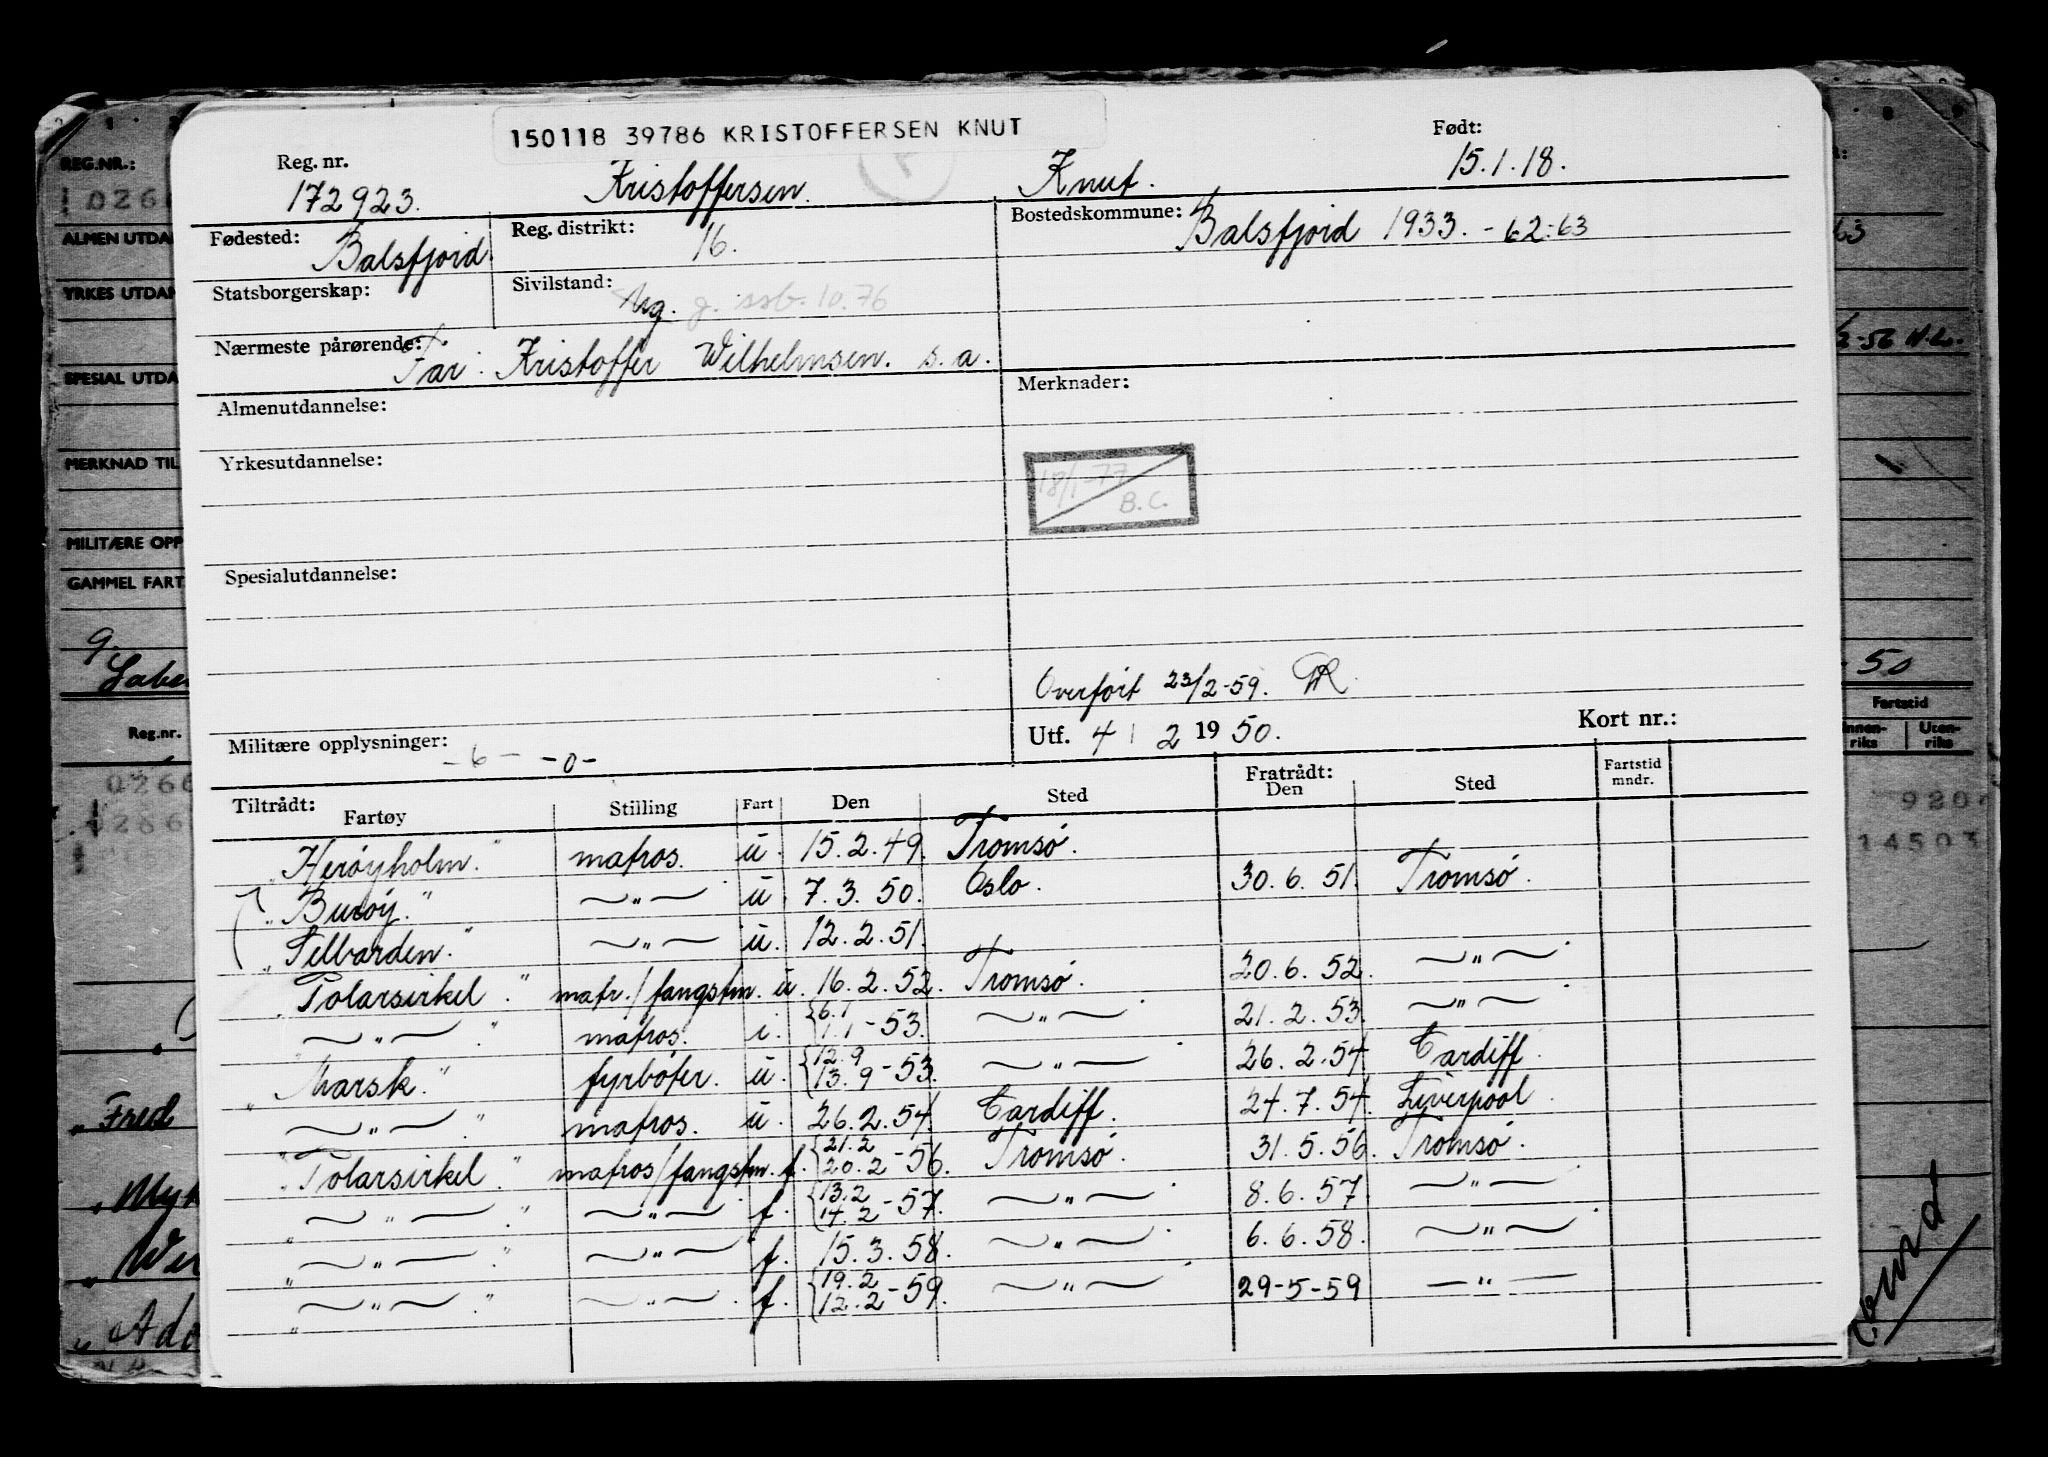 150118 39786 KRISTOFFERSEN KNUT
Reg. nr. 172923. Kristoffersen. Knut. Født: 15.1.18.
Fødested: Balsfjord Reg. distrikt: 16. Bostedskommune: Balsfjord 1933. - 62-63
Statsborgerskap: Sivilstand: Ug. g. ssb. 10.76
Nærmeste pårørende: Far: Kristoffer Wilhelmsen. s.a.
Almenutdannelse: Merknader:
Yrkesutdannelse:
18/1-77 B.C.
Spesialutdannelse:
Overført 23/2-59.
Militære opplysninger: -6- -0- Utf. 4 / 2 1950. Kort nr.:
Tiltrådt: Fartøy Stilling Fart Den Sted Fratrådt: Den Sted Fartstid mndr.
"Herøyholm." matros. u. 15.2.49. Tromsø.
"Burøy." —"— u. 7.3.50. Oslo. 30.6.51. Tromsø.
"Selbarden." —"— u. 12.2.51.
"Polarsirkel." matr./fangstm. u. 16.2.52. Tromsø. 20.6.52. —"—
" —"— " matros. i. {6.1 1.1-53. —"— 21.2.53. —"—
"Marsk." fyrbøter. u. {12.9 13.9-53. —"— 26.2.54. Cardiff.
" —"— " matros. u. 26.2.54. Cardiff. 24.7.54. Liverpool.
"Polarsirkel." matros/fangstm. f. {21.2 20.2-56. Tromsø. 31.5.56. Tromsø.
" —"— " —"— f. {13.2 14.2-57. —"— 8.6.57. —"—
" —"— " —"— f. 15.3.58. —"— 6.6.58. —"—
" —"— " —"— f. {19.2 12.2-59. —"— 29-5-59 —"—
REG.NR.:
ALMEN UTDA
YRKES UTDAN
SPESIAL UTDA
MERKNAD TIL
MILITÆRE OPP
GAMMEL FART
Reg.nr.
Fred
- 50
Fartstid
Innenriks Utenriks
9204
14503